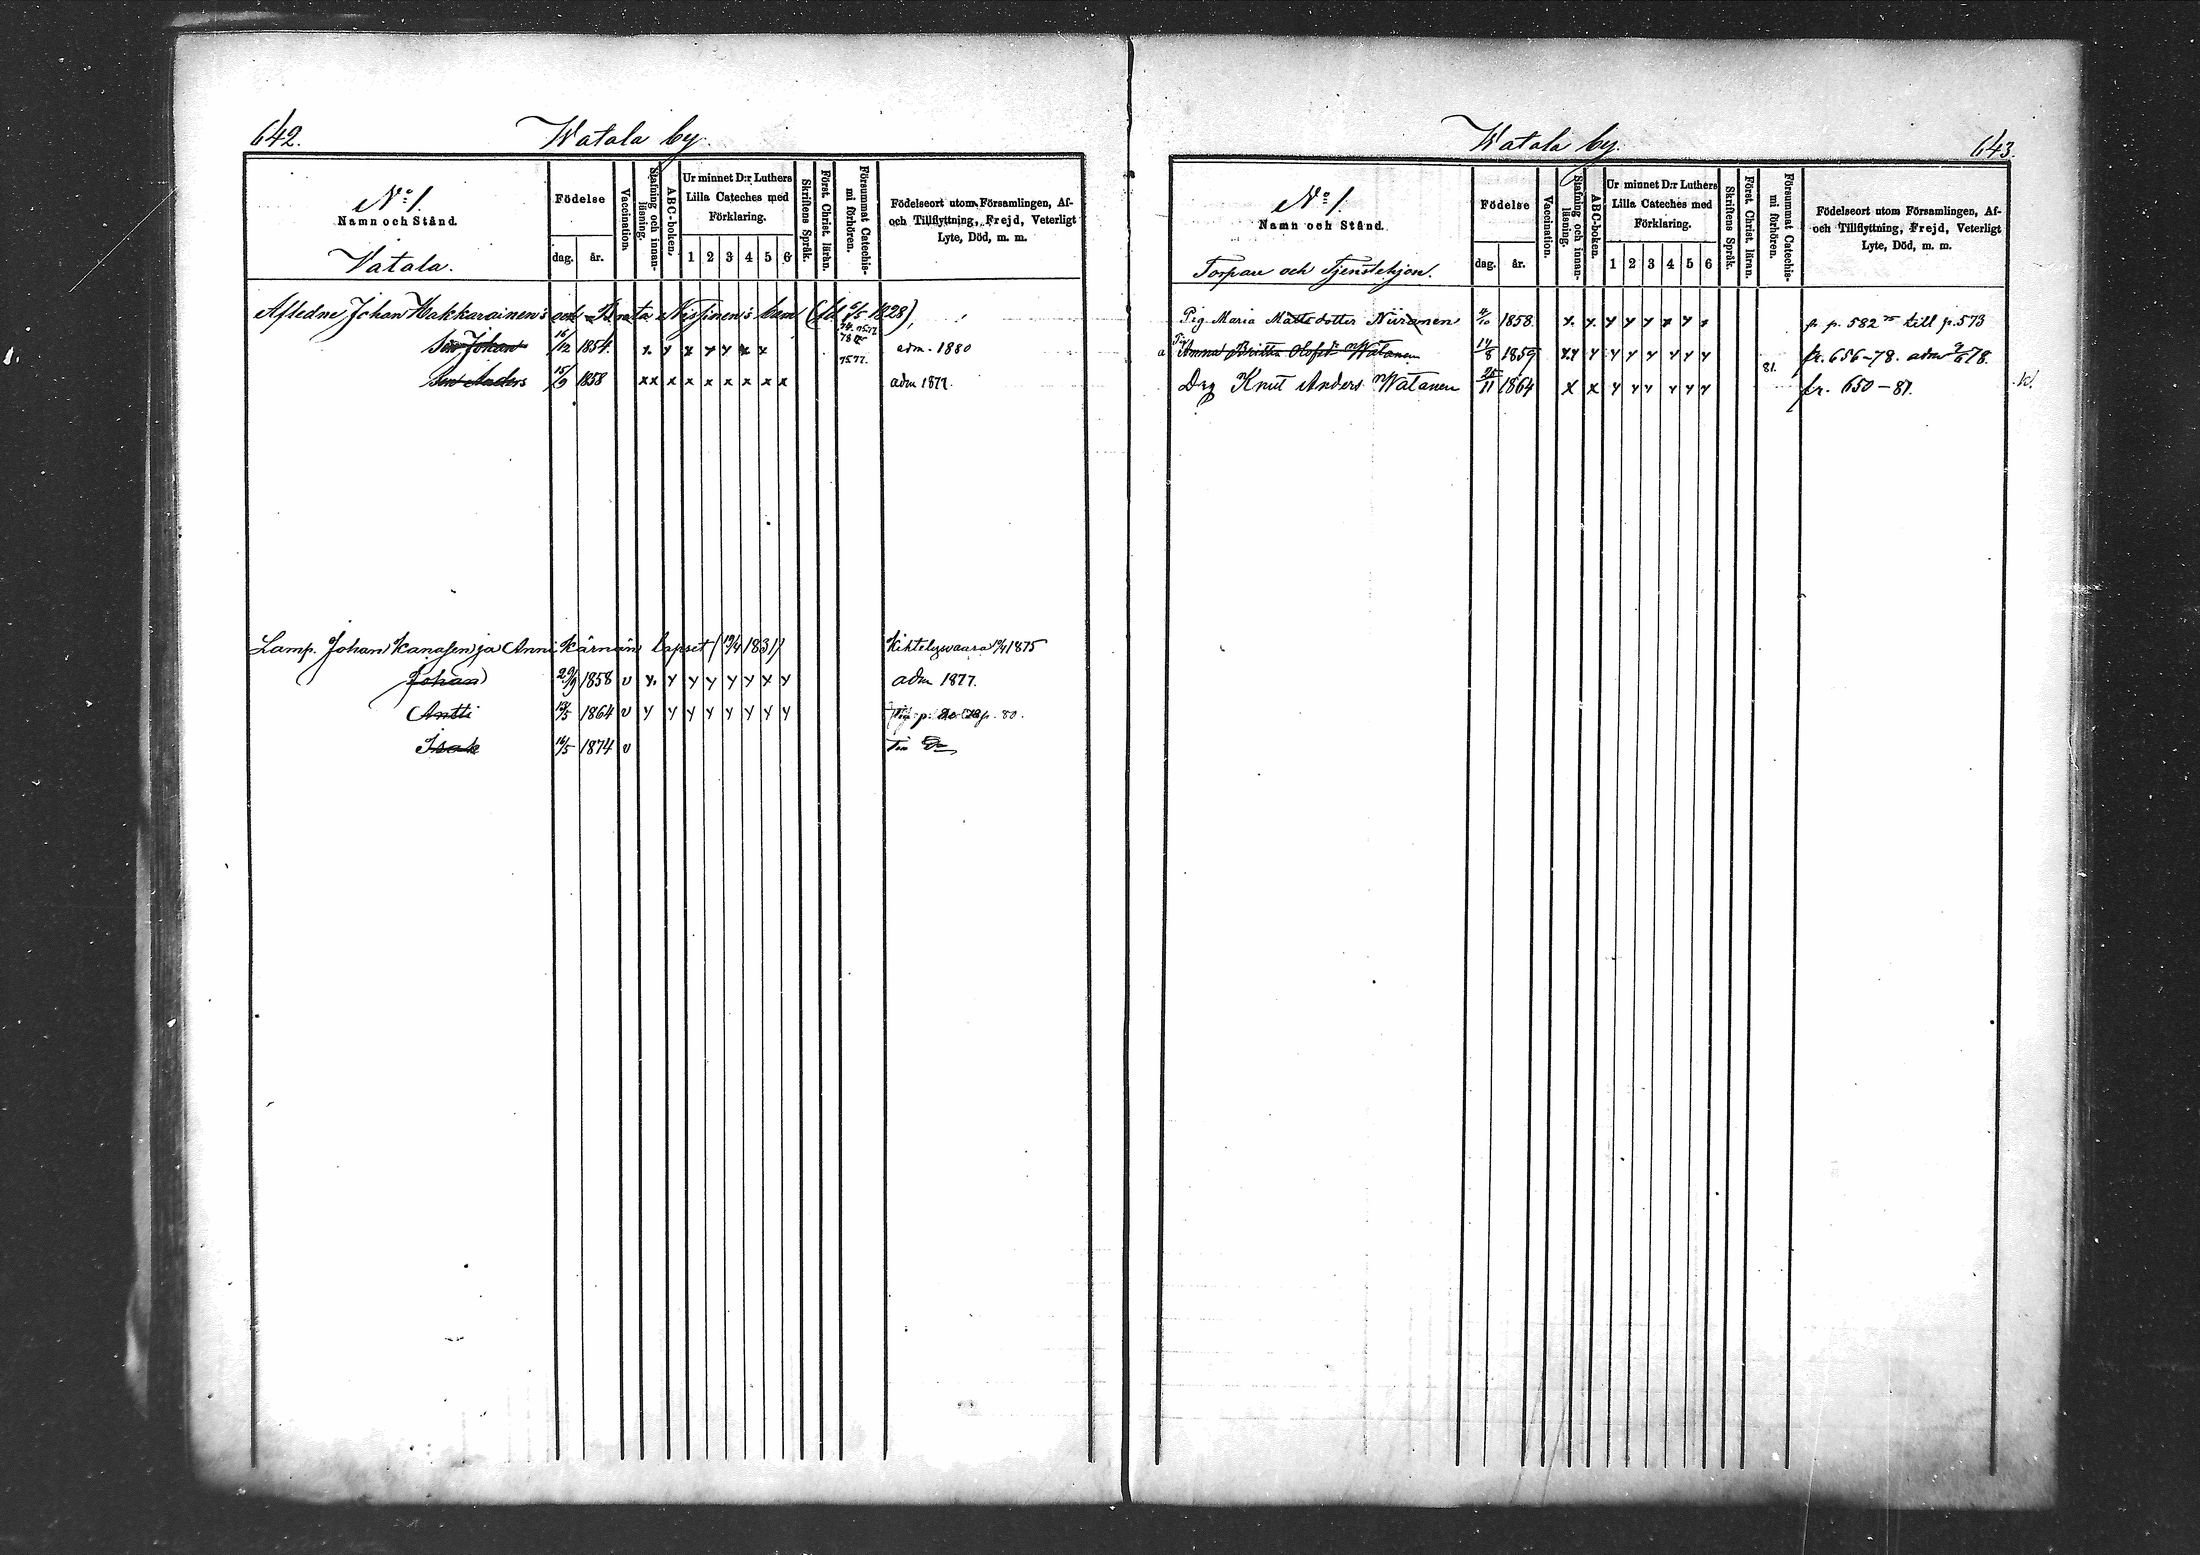 642.
Watala by.
No 1.
Namn och Stånd.
Watala.
Födelse
dag.
år.
Vaccination.
Stafning och innan-
läsning.
ABC-boken.
Ur minnet D:r Luthers
Lilla Cateches med
Förklaring.
1 2 3 4 5 6
Skriftens Språk.
Först. Christ. läran.
Försummat Catechis-
mi förhören.
Födelseort utom Församlingen, Af-
och Tillflyttning, Frejd, Veterligt
Lyte, Död, m. m.
Afledne Johan Makkarainens och Nissinens barn (fd 6/5 1828)
74. 75 77
Son Johan 16/12 1854. x. y x y y x x adm. 1880
75 77.
Son Anders 15/9 1858 xx x x x x x x x adm 1877.
Lamp. Johan Kanasen ja Anni Kärnän lapset (19/4 1831) Kihtelysvaara 1875
Johan 29/9 1858 v y. y y y y y x y adm 1877.
Antti 13/5 1864 v y y y y y y y y p. 80.
Isak 16/5 1874 v
643.
Watala by.
No 1.
Namn och Stånd.
Torpare och Tjenstehjon.
Födelse
dag.
år.
Vaccination.
Stafning och innan-
läsning.
ABC-boken.
Ur minnet D:r Luthers
Lilla Cateches med
Förklaring.
1 2 3 4 5 6
Skriftens Språk.
Först. Christ. läran.
Försummat Catechis-
mi förhören.
Födelseort utom Församlingen, Af-
och Tillflyttning, Frejd, Veterligt
Lyte, Död, m. m.
Pig. Maria Mattsdotter Niiranen 4/10 1858. x. y. y y y x y x fr p. 582 75 till p. 573
a Pig Anna Britta Olofsdr Watanen 14/8 1859 xy y y y y y y y fr. 656-78. adm 78.
81.
Drg Knut Anders Watanen 25/11 1864 x x y y y y y y fr. 650-81.